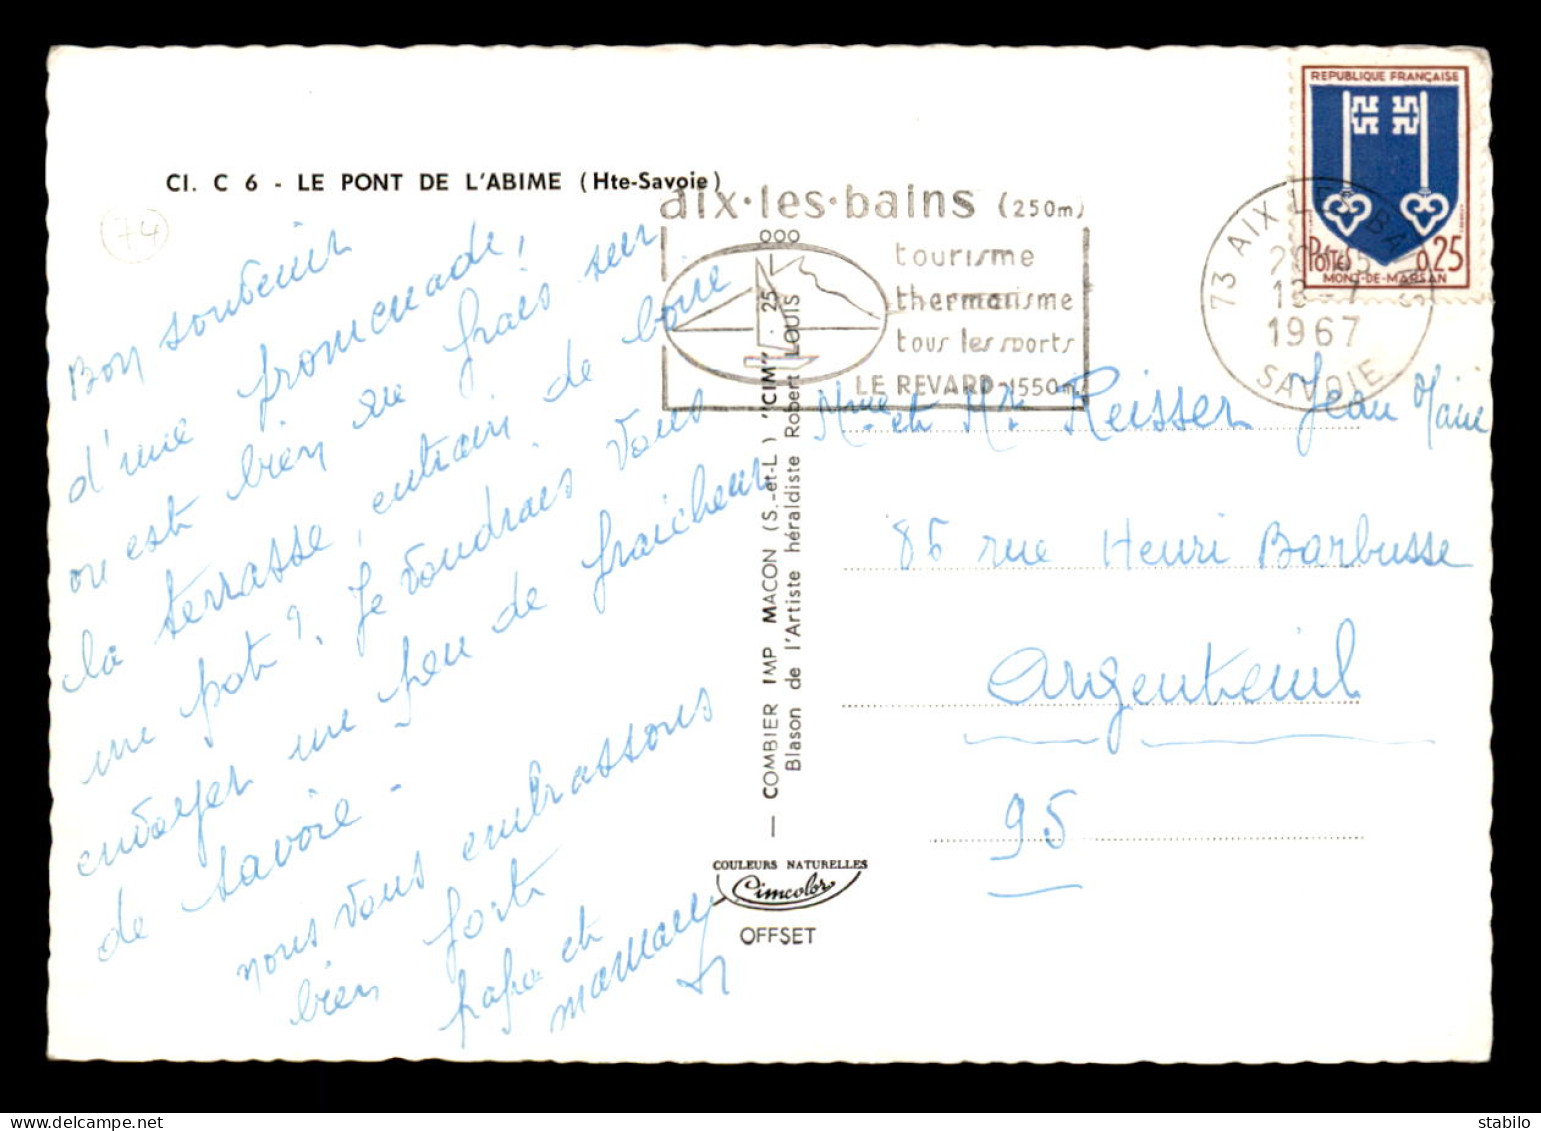 CI. C 6 - LE PONT DE L'ABIME (Hte-Savoie)
74
Bon souvenir
d'une promenade,
on est bien au frais sur
la terrasse, entrain de boire
une pot ?. Je voudrais vous
envoyer une peu de fraicheur
de savoie -
nous vous embrassons
bien fort
papa et
maman
aix·les·bains (250m)
tourisme
thermalisme
tous les sports
LE REVARD-1550m
REPUBLIQUE FRANÇAISE
POSTES 0,25
MONT-DE-MARSAN
73 AIX LES BAINS
18 - 7
1967
SAVOIE
Mme et Mr Reisser Jean Marie
86 rue Henri Barbusse
Argenteuil
95
— COMBIER IMP MACON (S.-et-L.) "CIM" · 25 L ooo
Blason de l'Artiste héraldiste Robert LOUIS
COULEURS NATURELLES
Cimcolor
OFFSET
stabylo - delcampe.net